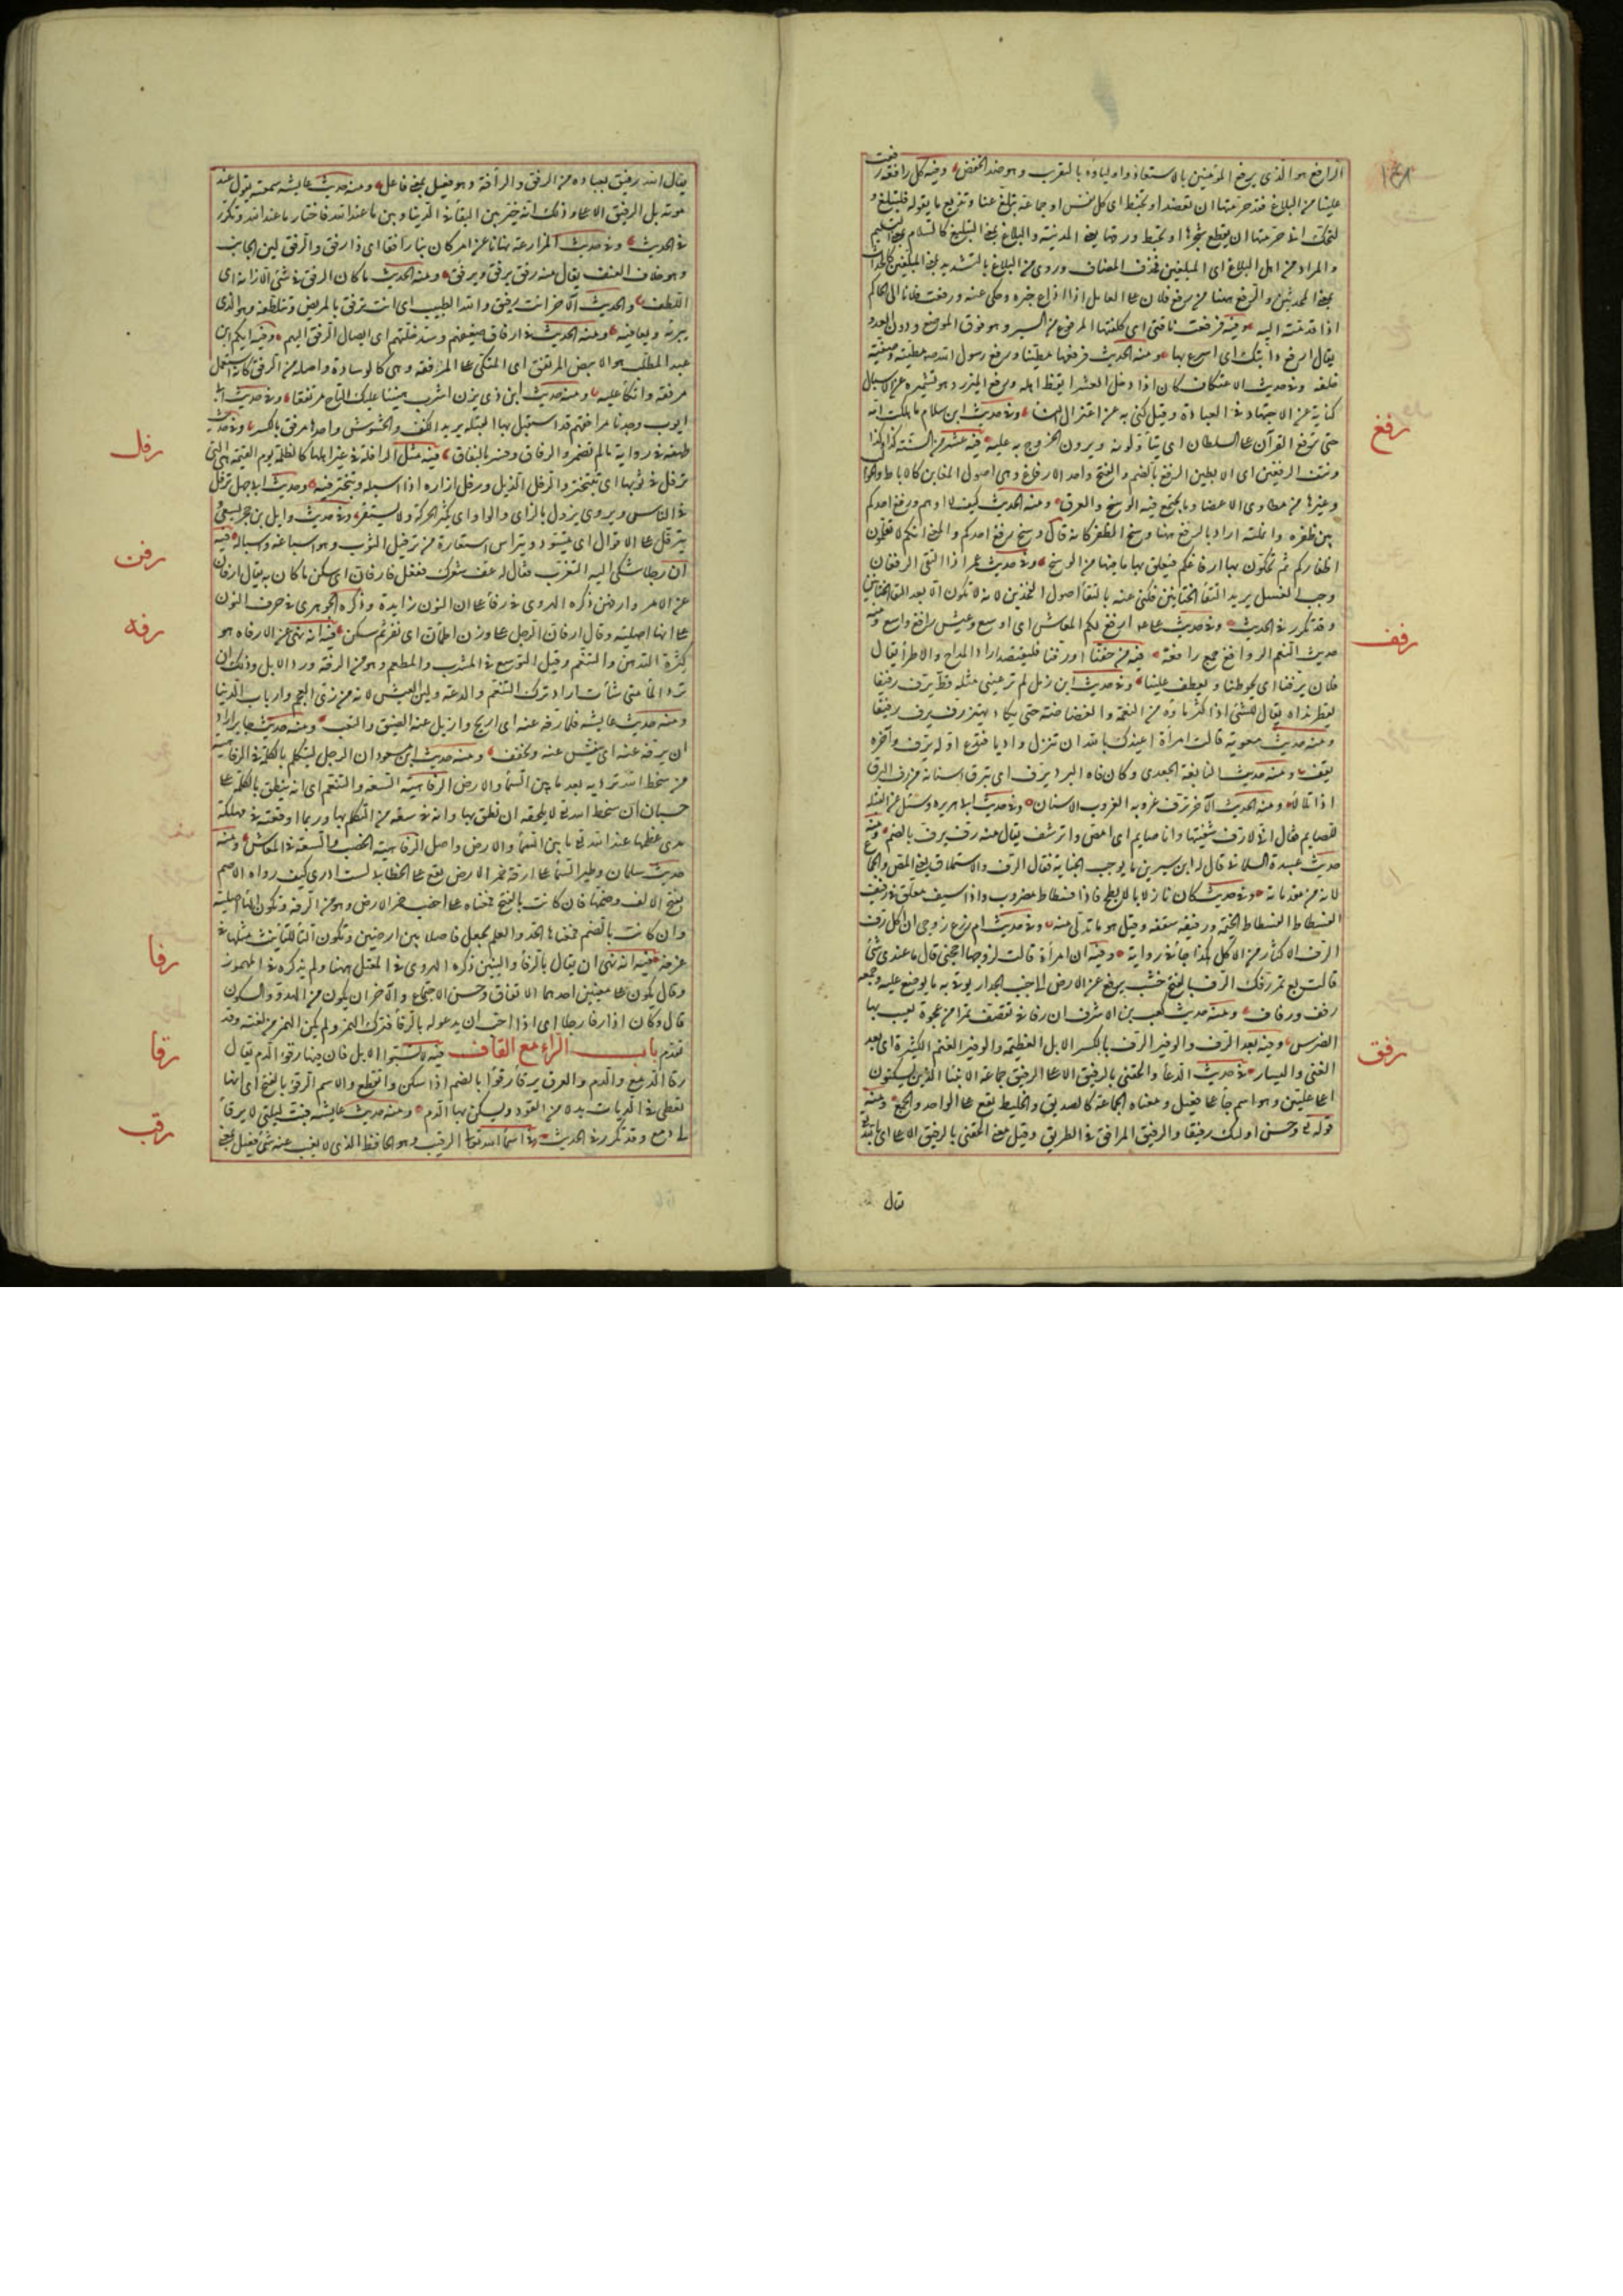 ١٤٨
الرافع هو الذي يرفع المؤمنين بالاسعاد واولياءه بالتقرب وهو ضد الخفض وفيه كل رافعة رفعت
علينا من البلاغ فقد حرمتها ان تعضد او تخبط اى كل نفس او جماعة تبلغ عنا وتذيع ما يقوله فلتبلغ و
لتحك انى حرمتها ان يقطع شجرها او يخبط ورقها يعنى المدينة والبلاغ بمعنى التبليغ كالسلام بمعنى التسليم
والمراد من اهل البلاغ اى المبلغين فحذف المضاف وروى من البلاغ بالتشديد بمعنى المبلغين كالحداث
بمعنى المحدثين والرفع ههنا من رفع فلان على العامل اذا اذاع خبره وحكى عنه ورفعت فلانا الى الحاكم
اذا قدمته اليه وفيه فرفعت ناقتى اى كلفتها المرفوع من السير وهو فوق الموضوع ودون العدو
يقال ارفع دابتك اى اسرع بها ومنه الحديث فرفعنا مطينا ورفع رسول الله مطيته وصفية
خلفه وفى حديث الاعتكاف كان اذا دخل العشر ايقظ اهله ورفع المئزر وهو تشميره عن الاسبال
كناية عن الاجتهاد فى العبادة وقيل كنى به عن اعتزال النساء وفى حديث ابن سلام ما هلكت امة
حتى ترفع القرآن على السلطان اى يتأولونه ويرون الخروج به عليه
رفغ
فيه عشر من السنة كذا وكذا
ونتف الرفغين اى الابطين الرفغ بالضم والفتح واحد الارفاغ وهى اصول المغابن كالاباط والحوالب
وغيرها من مطاوى الاعضاء وما يجتمع فيه الوسخ والعرق ومنه الحديث كيف لا اوهم ورفغ احدكم
بين ظفره وانملته اراد بالرفغ ههنا وسخ الظفر كانه قال ووسخ رفغ احدكم والمعنى انكم لا تقلمون
اظفاركم ثم تحكون بها ارفاغكم فيعلق بها ما فيها من الوسخ وفى حديث عمر اذا التقى الرفغان
وجب الغسل يريد التقاء الختانين فكنى عنه بالتقاء اصول الفخذين لانه لا يكون الا بعد التقاء الختانين
وقد تكرر فى الحديث وفى حديث على ارفغ لكم المعاش اى اوسع وعيش رافغ واسع ومنه
حديثه النعم الروافغ جمع رافغة
رفف
فيه من حفنا او رفنا فليقتصد اراد المدح والاطراء يقال
فلان يرفنا اى يحوطنا ويعطف علينا وفى حديث ابن زمل لم تر عينى مثله قط يرف رفيفا
يقطر نداه يقال للشئ اذا كثر ماؤه من النعمة والغضاضة حتى يكاد يهتز رف يرف رفيفا
ومنه حديث معوية قالت امرأة اعيذك بالله ان تنزل واديا فتدع اوله يرف وآخره
يقف ومنه حديث النابغة الجعدى وكان فاه البرد يرف اى تبرق اسنانه من رف البرق
اذا تلألأ ومنه الحديث الآخر ترف غروبه الغروب الاسنان وفى حديث ابى هريره وسئل عن القبلة
للصايم فقال انى لارف شفتيها وانا صايم اى امص واترشف يقال منه رف يرف بالضم ومنه
حديث عبيدة السلمانى قال له ابن سيرين ما يوجب الجنابة فقال الرف والاستملاق يعنى المص والجماع
لانه من مقدماته وفى حديث كان نازلا بالابطح فاذا فسطاط مضروب واذا سيف معلق فى رفيف
الفسطاط الفسطاط الخيمة ورفيفه سقفه وقيل هو ما تدلى منه وفى حديث ام زرع زوجى ان اكل رف
الرف الاكثار من الاكل هكذا جاء فى رواية وفيه ان امرأة قالت لزوجها احجنى قال ما عندى شئ
قالت بع تمر رفك الرف بالفتح خشب يرفع عن الارض الى جنب الجدار يوقى به ما يوضع عليه وجمعه
رفف ورفاف ومنه حديث كعب بن الاشرف ان رفافى تقصف تمرا من عجوة يغيب فيها
الضرس وفيه بعد الرف والوفير الرف بالكسر الابل العظيمة والوفير الغنم الكثيرة اى بعد
الغنى واليسار
رفق
فى حديث الدعاء والحقنى بالرفيق الاعلى الرفيق جماعة الانبياء الذين يسكنون
اعلى عليين وهو اسم جاء على فعيل ومعناه الجماعة كالصديق والخليط يقع على الواحد والجمع ومنه
قوله تع وحسن اولئك رفيقا والرفيق المرافق فى الطريق وقيل معنى الحقنى بالرفيق الاعلى اى بالله تع
يقال
يقال الله رفيق بعباده من الرفق والرأفة وهو فعيل بمعنى فاعل ومنه حديث عايشه سمعته يقول عند
موته بل الرفيق الاعلى وذلك انه خير بين البقاء فى الدنيا وبين ما عند الله فاختار ما عند الله وتكرر
فى الحديث وفى حديث المزارعة نهانا عن امر كان بنا رافقا اى ذا رفق والرفق لين الجانب
وهو خلاف العنف يقال منه رفق يرفق ويرفق ومنه الحديث ما كان الرفق فى شئ الا زانه اى
اللطف والحديث الآخر انت رفيق والله الطبيب اى انت ترفق بالمريض وتتلطفه وهو الذى
يبرئه ويعافيه ومنه الحديث فى ارفاق ضعيفهم وسد خلتهم اى ايصال الرفق اليهم وفيه ايكم ابن
عبد المطلب هو الابيض المرتفق اى المتكى على المرفقة وهى كالوسادة واصله من المرفق كانه استعمل
مرفقه واتكأ عليه ومنه حديث ابن ذى يزن اشرب هنيئا عليك التاج مرتفقا وفى حديث ابى
ايوب وجدنا مرافقهم قد استقبل بها القبلة يريد الكنف والحشوش واحدها مرفق بالكسر وفى حديث
طهفة فى رواية ما لم تضمروا الرفاق وفسر بالنفاق
رفل
فيه مثل الرافلة فى غير اهلها كالظلمة يوم القيمة هى التى
ترفل فى ثوبها اى تتبختر والرفل الذيل ورفل ازاره اذا اسبله وتبختر فيه وحديث ابى جهل يرفل
فى الناس ويروى يزول بالزاى والواو اى يكثر الحركة ولا يستقر وفى حديث وايل بن حجر يسعى و
يترفل على الاقوال اى يتسود ويتراس استعارة من ترفيل الثوب وهو اسباغه واسباله
رفن
فيه
ان رجلا شكى اليه التعزب فقال له عف شعرك ففعل فارفان اى سكن ما كان به يقال ارفان
عن الامر وارفهن ذكره الهروى فى رفأ على ان النون زايدة وذكره الجوهرى فى حرف النون
على انها اصلية وقال ارفان الرجل على وزن اطمأن اى نفر ثم سكن
رفه
فيه انه نهى عن الارفاه هو
كثرة التدهن والتنعم وقيل التوسع فى المشرب والمطعم وهو من الرفه ورد الابل وذلك ان
ترد الماء متى شاءت اراد ترك التنعم والدعة ولين العيش لانه من زى العجم وارباب الدنيا
ومنه حديث عايشه فلما رفه عنه اى اريح وازيل عنه الضيق والتعب ومنه حديث جابر اراد
ان يرفه عنه اى ينفس عنه ويخفف ومنه حديث ابن مسعود ان الرجل ليتكلم بالكلمة فى الرفاهية
من سخط الله ترديه بعد ما بين السماء والارض الرفاهية السعة والتنعم اى انه ينطق بالكلمة على
حسبان ان سخط الله تع لا يلحقه ان نطق بها وانه فى سعة من التكلم بها وربما اوقعته فى مهلكة
مدى عظمها عند الله تع ما بين السماء والارض واصل الرفاهية الخصب والسعة فى المعاش ومنه
حديث سلمان وطير السماء على ارفه خمر الارض يقع على الخطابى لست ادرى كيف رواه الاصم
بفتح الالف وضمها فان كانت بالفتح فمعناه على اخصب خمر الارض وهو من الرفه وتكون الهاء اصلية
وان كانت بالضم فمعناها الحد والعلم يجعل فاصلا بين ارضين وتكون التاء للتانيث مثلها فى
غرفة
رفا
فيه انه نهى ان يقال بالرفاء والبنين ذكره الهروى فى المعتل ههنا ولم يذكره فى المهموز
وقال يكون على معنيين احدهما الاتفاق وحسن الاجتماع والآخر ان يكون من الهدو والسكون
قال وكان اذا رفا رجلا اى اذا احب ان يدعو له بالرفاء فترك الهمز ولم يكن الهمز من لغته وقد
تقدم باب الراء مع القاف
رقا
فيه لا تسبوا الابل فان فيها رقوء الدم يقال
رقا الدمع والدم والعرق يرقأ رقوءا بالضم اذا سكن وانقطع والاسم الرقوء بالفتح اى انها
تعطى فى الديات بدلا من القود ويسكن بها الدم ومنه حديث عايشه فبت ليلتى لا يرقأ
لى دمع وقد تكرر فى الحديث
رقب
فى اسماء الله تعالى الرقيب وهو الحافظ الذى لا يغيب عنه شئ فعيل بمعنى